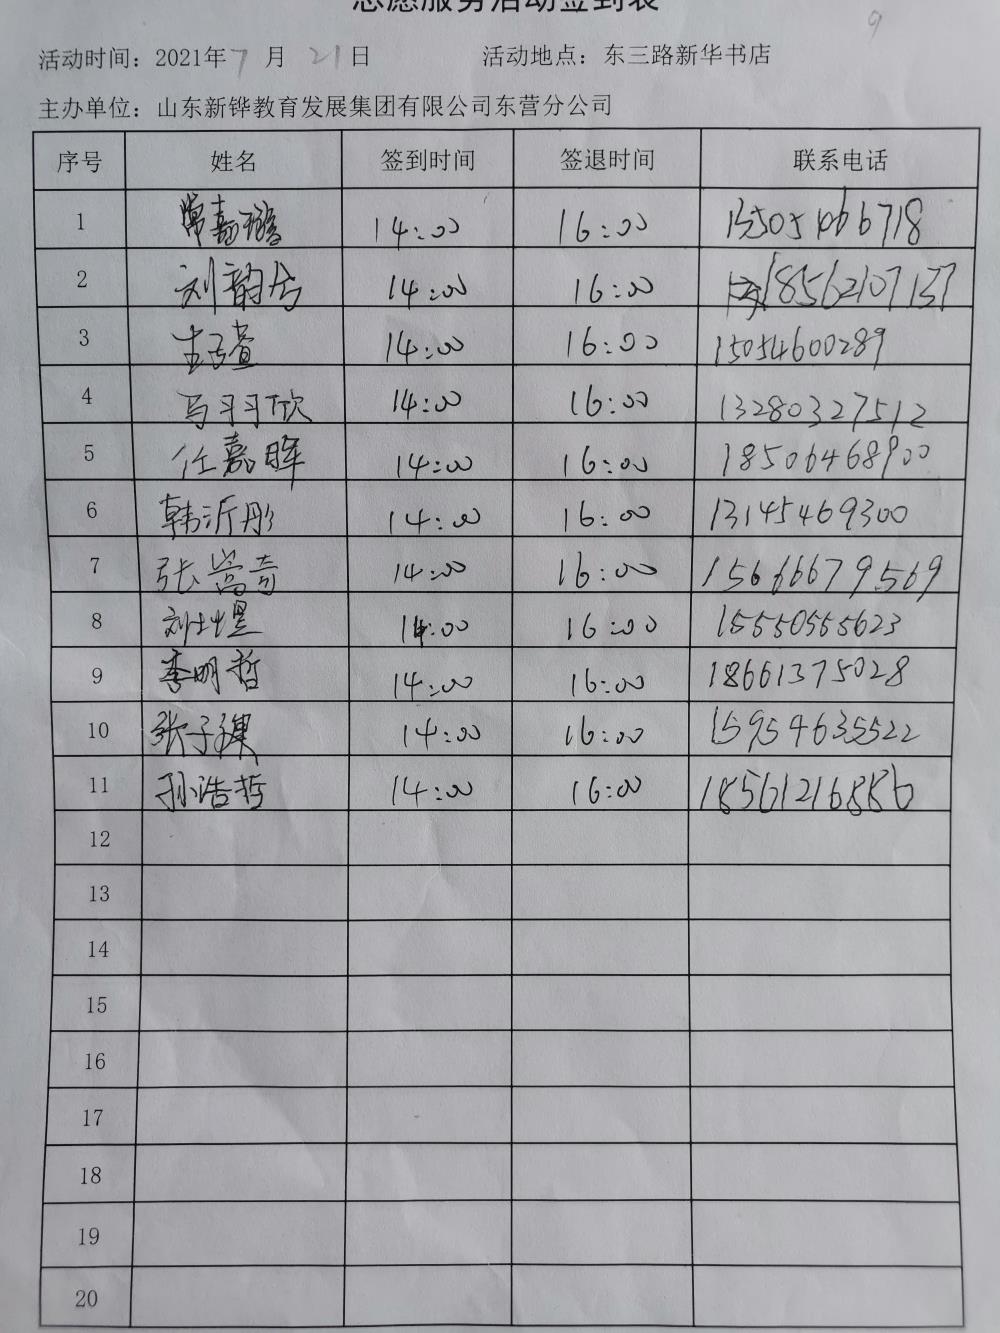 志愿服务活动签到表
9
活动时间：2021年7月21日 活动地点：东三路新华书店
主办单位：山东新铧教育发展集团有限公司东营分公司
序号 姓名 签到时间 签退时间 联系电话
1 常嘉璇 14:00 16:00
2 刘韵 14:00 16:00 18562107137
3 14:00 16:00 15054600289
4 马习习欣 14:00 16:00 13280327512
5 任嘉晖 14:00 16:00 18506468900
6 韩沂彤 14:00 16:00 13145469300
7 张嵩音 14:00 16:00 15666679569
8 刘士煜 14:00 16:00 15550555623
9 李明哲 14:00 16:00 18661375028
10 张子 14:00 16:00 15954635522
11 孙浩哲 14:00 16:00 18561216886
12
13
14
15
16
17
18
19
20